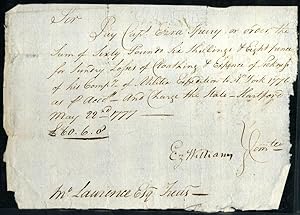 Sir
Pay Capt Ezra Sperry or order the
Sum of Sixty Pounds Six Shillings & Eight pence
for Sundry Losses of Cloathing & Expence of Sickness
of his Compy of Militia Expedition to N York 1776
as pr Accot And Charge the State Hartford
May 22nd 1777
£60.6.8
Ez Williams } Comtee
Mr Lawrence Esq Treas